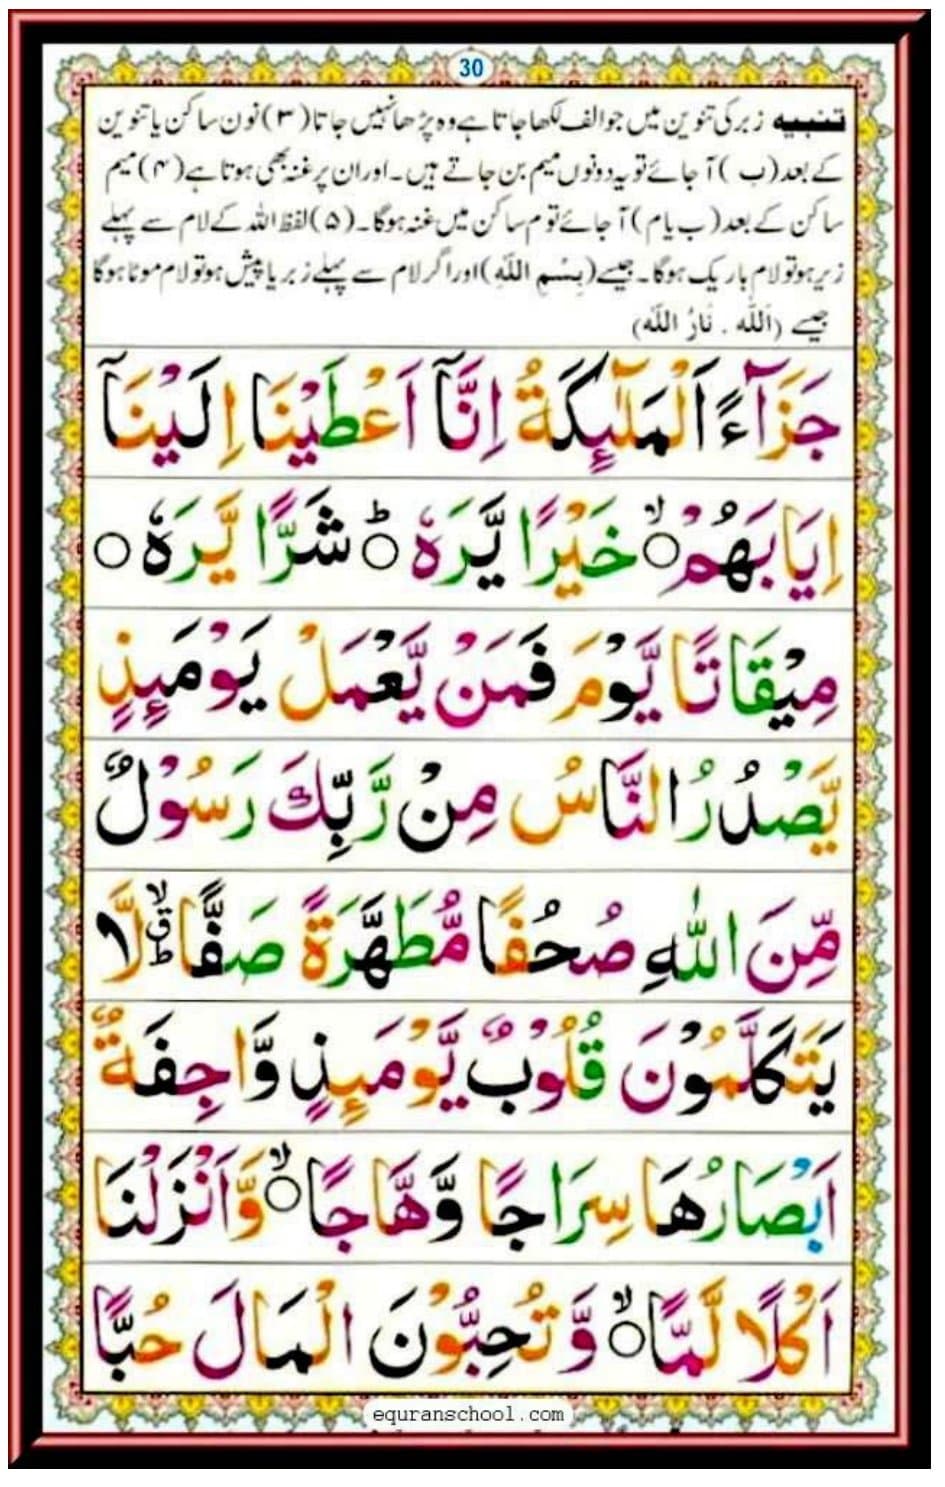 30
تنبیہ زبر کی تنوین میں جو الف لکھا جاتا ہے وہ پڑھا نہیں جاتا (۳) نون ساکن یا تنوین
کے بعد (ب) آ جائے تو یہ دونوں میم بن جاتے ہیں۔ اور ان پر غنہ بھی ہوتا ہے (۴) میم
ساکن کے بعد (ب یا م) آ جائے تو م ساکن میں غنہ ہوگا۔ (۵) لفظ اللہ کے لام سے پہلے
زیر ہو تو لام باریک ہوگا۔ جیسے (بِسْمِ اللّٰهِ) اور اگر لام سے پہلے زبر یا پیش ہو تو لام موٹا ہوگا
جیسے (اَللّٰه ۔ نَارُ اللّٰه)
جَزَآءً اَلْمَلٰٓئِكَةُ اِنَّآ اَعْطَيْنَا اِلَيْنَآ
اِيَابَهُمْ ۙ○ خَيْرًا يَّرَهٗ ؕ○ شَرًّا يَّرَهٗ ○
مِيْقَاتًا يَّوْمَ فَمَنْ يَّعْمَلْ يَوْمَئِذٍ
يَّصْدُرُ النَّاسُ مِنْ رَّبِّكَ رَسُوْلٌ
مِّنَ اللّٰهِ صُحُفًا مُّطَهَّرَةً صَفًّا ؕۙق لَّا
يَتَكَلَّمُوْنَ قُلُوْبٌ يَّوْمَئِذٍ وَّاجِفَةٌ
اَبْصَارُهَا سِرَاجًا وَّهَّاجًا ۙ○ وَّاَنْزَلْنَا
اَكْلًا لَّمًّا ۙ○ وَّ تُحِبُّوْنَ الْمَالَ حُبًّا
equranschool.com